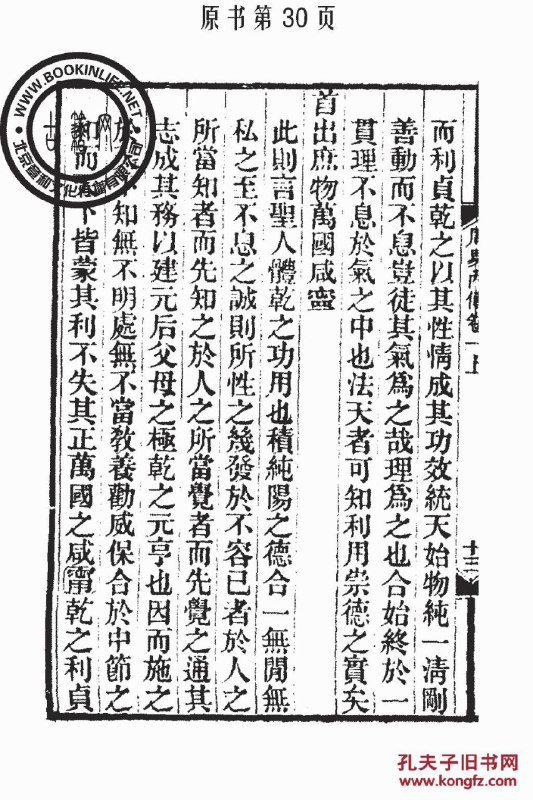 原书第30页
周易內傳卷一上
十三
而利貞乾之以其性情成其功效統天始物純一清剛
善動而不息豈徒其氣爲之哉理爲之也合始終於一
貫理不息於氣之中也法天者可知利用崇德之實矣
首出庶物萬國咸寧
此則言聖人體乾之功用也積純陽之德合一無閒無
私之至不息之誠則所性之幾發於不容已者於人之
所當知者而先知之於人之所當覺者而先覺之通其
志成其務以建元后父母之極乾之元亨也因而施之
於 知無不明處無不當敎養勸威保合於中節之
和而 下皆蒙其利不失其正萬國之咸寧乾之利貞
WWW.BOOKINLIFE.NET
孔夫子旧书网
www.kongfz.com